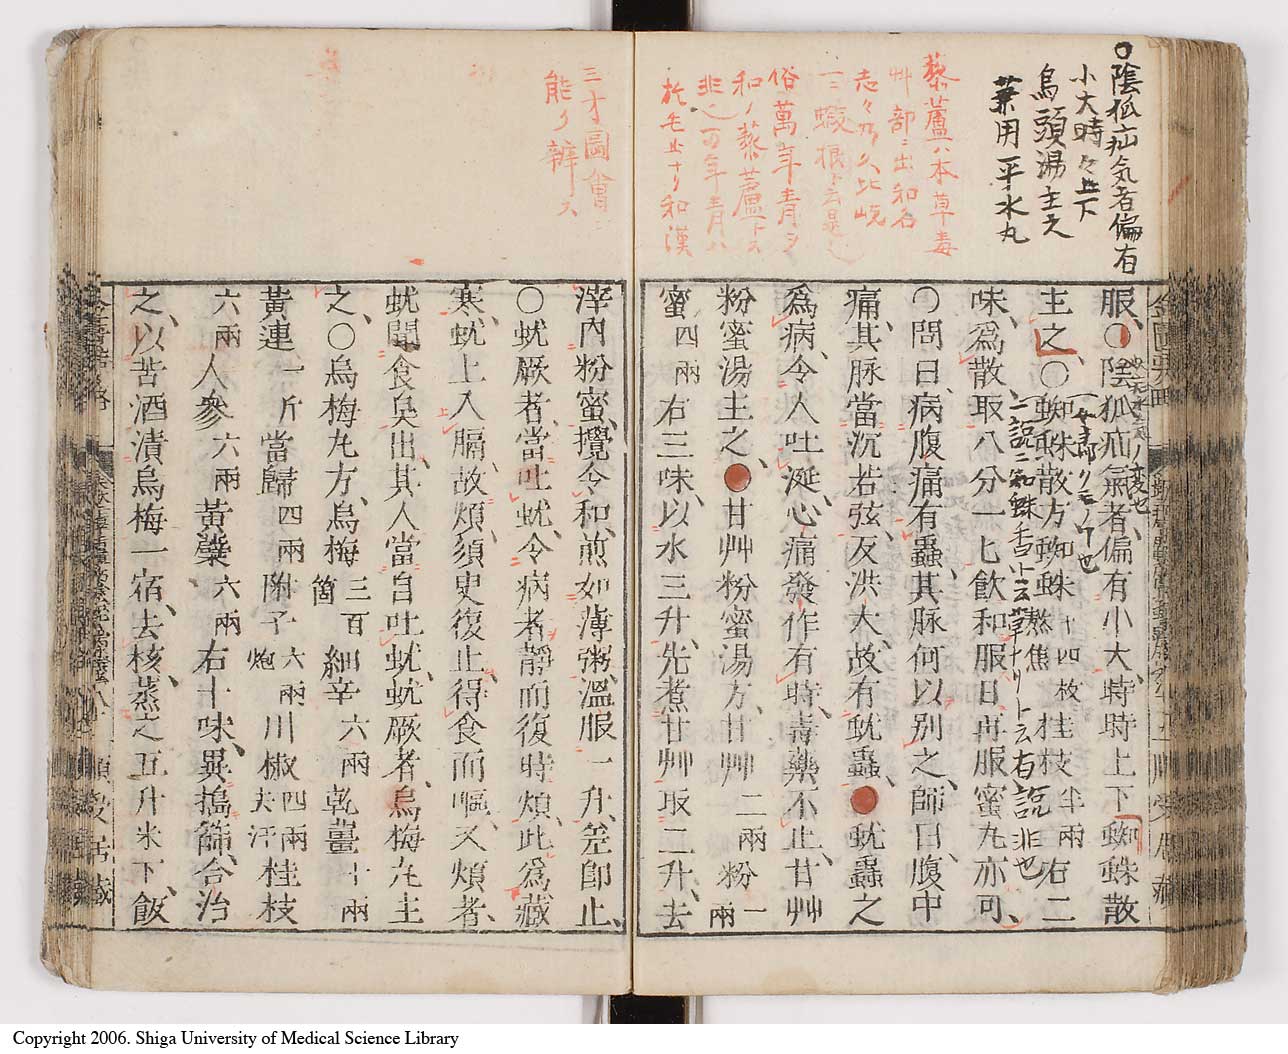 ○陰狐疝気者偏有
小大時々上下
烏頭湯主之
兼用平水丸
藜蘆ハ本草毒
艸部ニ出和名
俗萬年青ヲ
和ノ藜蘆トス
非也万年青ハ
三才圖會ニ
能ク辨ス
服、○陰狐疝氣者、偏有小大、時時上下、蜘蛛散
主之、○蜘蛛散方蜘蛛十四枚熬焦桂枝半兩右二
味、爲散、取八分一匕、飲和服、日再服、蜜丸亦可、
○問曰、病腹痛有蟲、其脉何以別之、師曰、腹中
痛、其脉當沉若弦、反洪大、故有蚘蟲、●蚘蟲之
爲病、令人吐涎、心痛發作有時、毒藥不止、甘艸
粉蜜湯主之、●甘艸粉蜜湯方、甘艸二兩粉一兩
蜜四兩右三味、以水三升、先煮甘艸取二升、去
滓、內粉蜜、攪令和、煎如薄粥、溫服一升、差卽止、
○蚘厥者、當吐蚘、令病者靜而復時煩、此爲藏
寒、蚘上入膈、故煩、須臾復止、得食而嘔、又煩者、
蚘聞食臭出、其人當自吐蚘、蚘厥者、烏梅丸主
之、○烏梅丸方、烏梅三百箇細辛六兩乾薑十兩
黃連一斤當歸四兩附子六兩炮川椒四兩去汗桂枝
六兩人參六兩黃蘗六兩右十味、異搗篩、合治
之、以苦酒漬烏梅一宿、去核、蒸之五升米下、飯
Copyright 2006. Shiga University of Medical Science Library